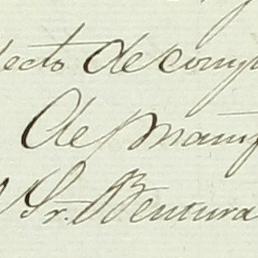 ecto de comp
de man
l Sr. Ventura